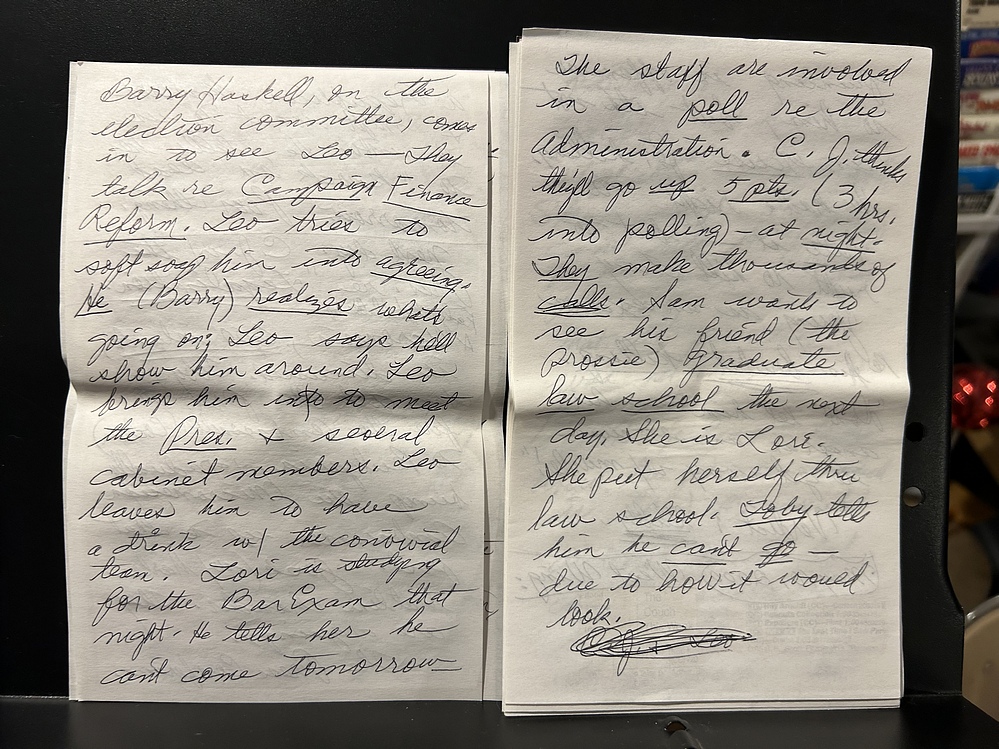 Barry Haskell, on the
election committee, comes
in to see Leo — They
talk re Campaign Finance
Reform. Leo tries to
soft soap him into agreeing.
He (Barry) realizes whats
going on; Leo says he'll
show him around. Leo
brings him into to meet
the Pres. & several
cabinet members. Leo
leaves him to have
a drink w/ the convivial
team. Lori is studying
for the Bar Exam that
night. He tells her he
can't come tomorrow
The staff are involved
in a poll re the
Administration. C. J. thinks
they'll go up 5 pts. (3 hrs.
into polling) – at night.
They make thousands of
calls. Sam wants to
see his friend (the
prossie) graduate
law school the next
day. She is Lori.
She put herself thru
law school. Toby tells
him he can't go —
due to how it would
look.